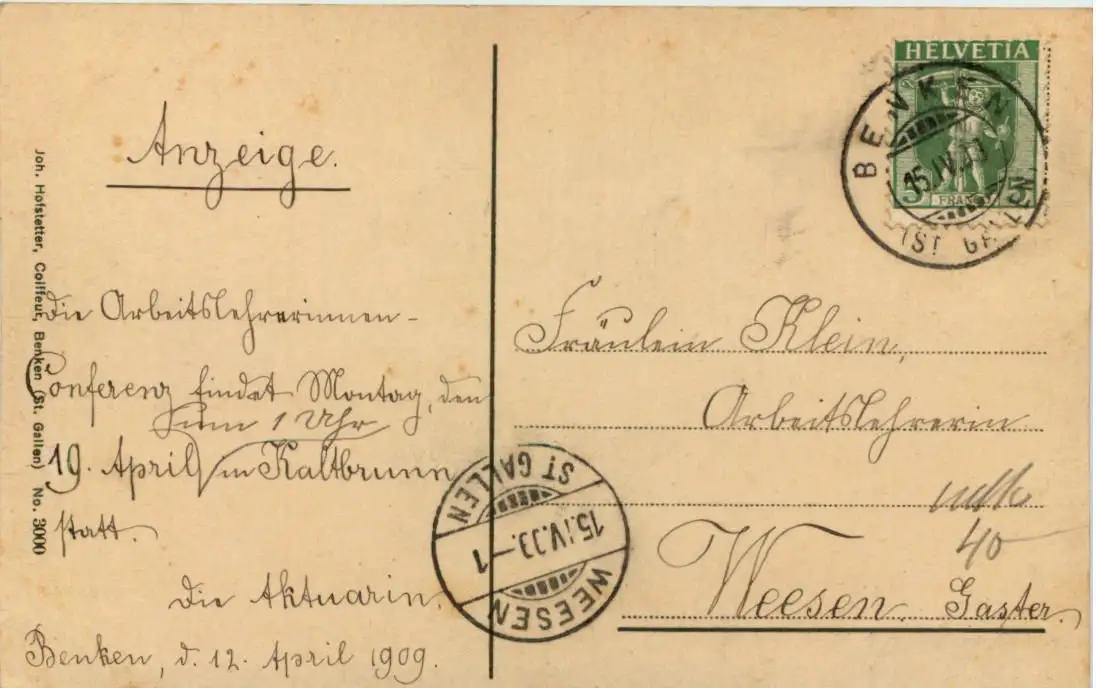 Anzeige.
Die Arbeitslehrerinnen-
Conferenz findet Montag, den
um 1 Uhr
19. April in Kaltbrunn
statt.
Die Aktuarin.
Benken, d. 12. April 1909.
Joh. Hofstetter, Coiffeur, Benken (St. Gallen) No. 3000
HELVETIA
5 FRANCO 5
BENKEN
15.IV.09
(ST. GALLEN
Fräulein Klein,
Arbeitslehrerin
40
Weesen. Gaster.
ST GALLEN
15.IV.09.-1
WEESEN